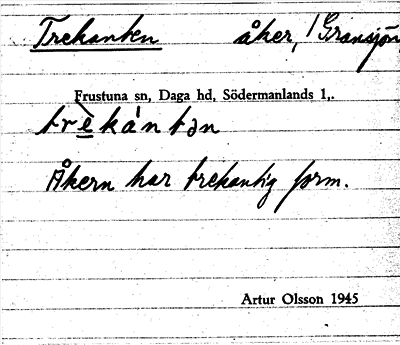 Trekanten åker, Gransjön
Frustuna sn, Daga hd, Södermanlands l,.
trèkántən
Åkern har trekantig form.
Artur Olsson 1945